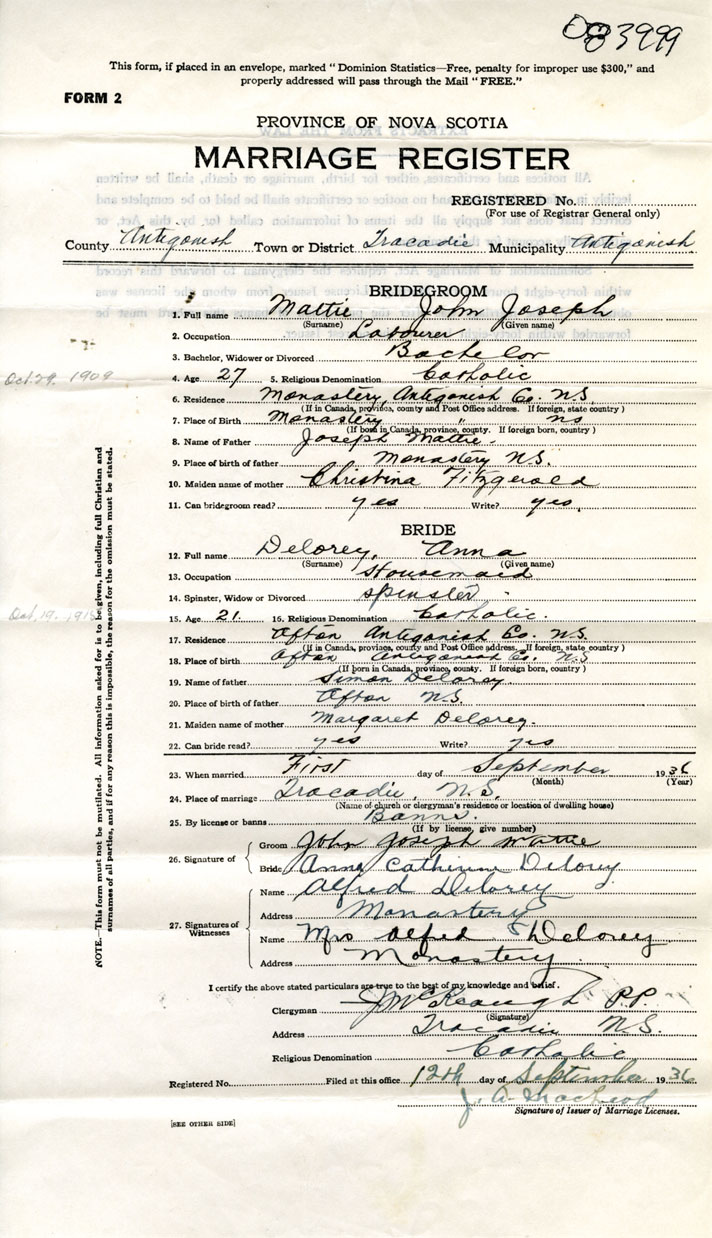 083999
This form, if placed in an envelope, marked "Dominion Statistics—Free, penalty for improper use $300," and
properly addressed will pass through the Mail "FREE."
FORM 2
PROVINCE OF NOVA SCOTIA
MARRIAGE REGISTER
REGISTERED No.
(For use of Registrar General only)
County Antigonish Town or District Tracadie Municipality Antigonish
BRIDEGROOM
1. Full name Mattie John Joseph
(Surname) (Given name)
2. Occupation Labourer
3. Bachelor, Widower or Divorced Bachelor
Oct. 29. 1909
4. Age 27 5. Religious Denomination Catholic
6. Residence Monastery, Antigonish Co. N.S.
(If in Canada, province, county and Post Office address. If foreign, state country)
7. Place of Birth Monastery " " NS
(If born in Canada, province, county. If foreign born, country)
8. Name of Father Joseph Mattie.
9. Place of birth of father Monastery N.S.
10. Maiden name of mother Christina Fitzgerald
11. Can bridegroom read? yes Write? yes.
BRIDE
12. Full name Delorey, Anna
(Surname) (Given name)
13. Occupation Housemaid
14. Spinster, Widow or Divorced Spinster
Oct. 19.
15. Age 21. 16. Religious Denomination Catholic.
17. Residence Afton Antigonish Co. N.S.
(If in Canada, province, county and Post Office address. If foreign, state country)
18. Place of birth Afton Antigonish Co. N.S
(If born in Canada, province, county. If foreign born, country)
19. Name of father Simon Delorey
20. Place of birth of father Afton N.S.
21. Maiden name of mother Margaret Delorey.
22. Can bride read? yes Write? yes
23. When married First day of September 1936
(Month) (Year)
24. Place of marriage Tracadie, N.S.
(Name of church or clergyman's residence or location of dwelling house)
25. By license or banns Banns.
(If by license, give number)
26. Signature of
Groom John Joseph Mattie
Bride Anna Catherine Delorey
27. Signatures of Witnesses
Name Alfred Delorey
Address Monastery
Name Mrs Alfred Delorey
Address Monastery
I certify the above stated particulars are true to the best of my knowledge and belief.
Clergyman J McKeough P.P.
(Signature)
Address Tracadie N.S.
Religious Denomination Catholic
Registered No. Filed at this office 12th day of September 1936
J. A. MacLeod
Signature of Issuer of Marriage Licenses.
[SEE OTHER SIDE]
NOTE.—This form must not be mutilated. All information asked for is to be given, including full Christian and
surnames of all parties, and if for any reason this is impossible, the reason for the omission must be stated.